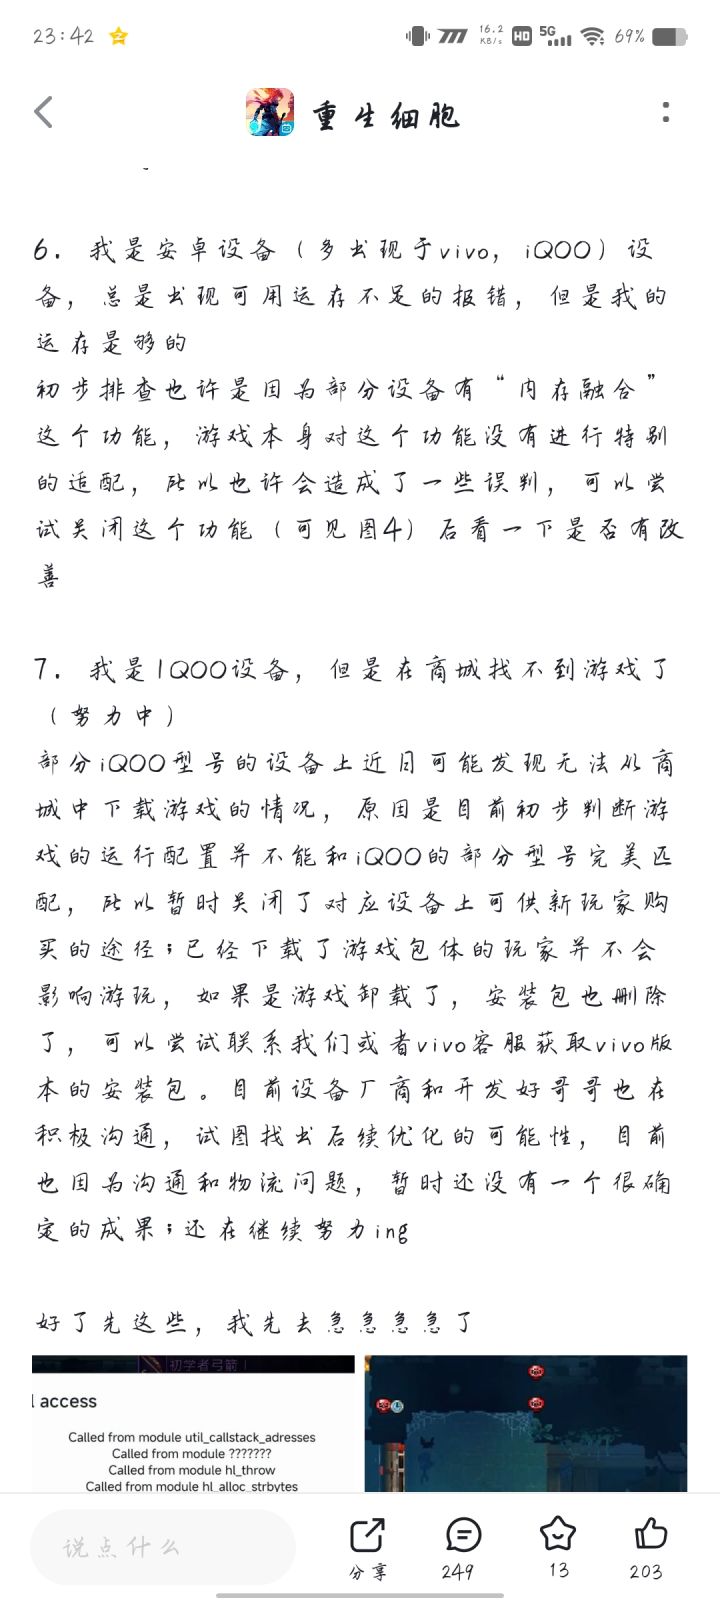 23:42
16.2
KB/s
HD
5G
69%
重生细胞
6. 我是安卓设备（多出现于vivo, iQOO）设
备，总是出现可用运存不足的报错，但是我的
运存是够的
初步排查也许是因为部分设备有“内存融合”
这个功能，游戏本身对这个功能没有进行特别
的适配，所以也许会造成了一些误判，可以尝
试关闭这个功能（可见图4）后看一下是否有改
善
7. 我是IQOO设备，但是在商城找不到游戏了
（努力中）
部分iQOO型号的设备上近日可能发现无法从商
城中下载游戏的情况，原因是目前初步判断游
戏的运行配置并不能和iQOO的部分型号完美匹
配，所以暂时关闭了对应设备上可供新玩家购
买的途径；已经下载了游戏包体的玩家并不会
影响游玩，如果是游戏卸载了，安装包也删除
了，可以尝试联系我们或者vivo客服获取vivo版
本的安装包。目前设备厂商和开发好哥哥也在
积极沟通，试图找出后续优化的可能性，目前
也因为沟通和物流问题，暂时还没有一个很确
定的成果；还在继续努力ing
好了先这些，我先去急急急急了
初学者弓箭 I
l access
Called from module util_callstack_adresses
Called from module ???????
Called from module hl_throw
Called from module hl_alloc_strbytes
说点什么
分享
249
13
203